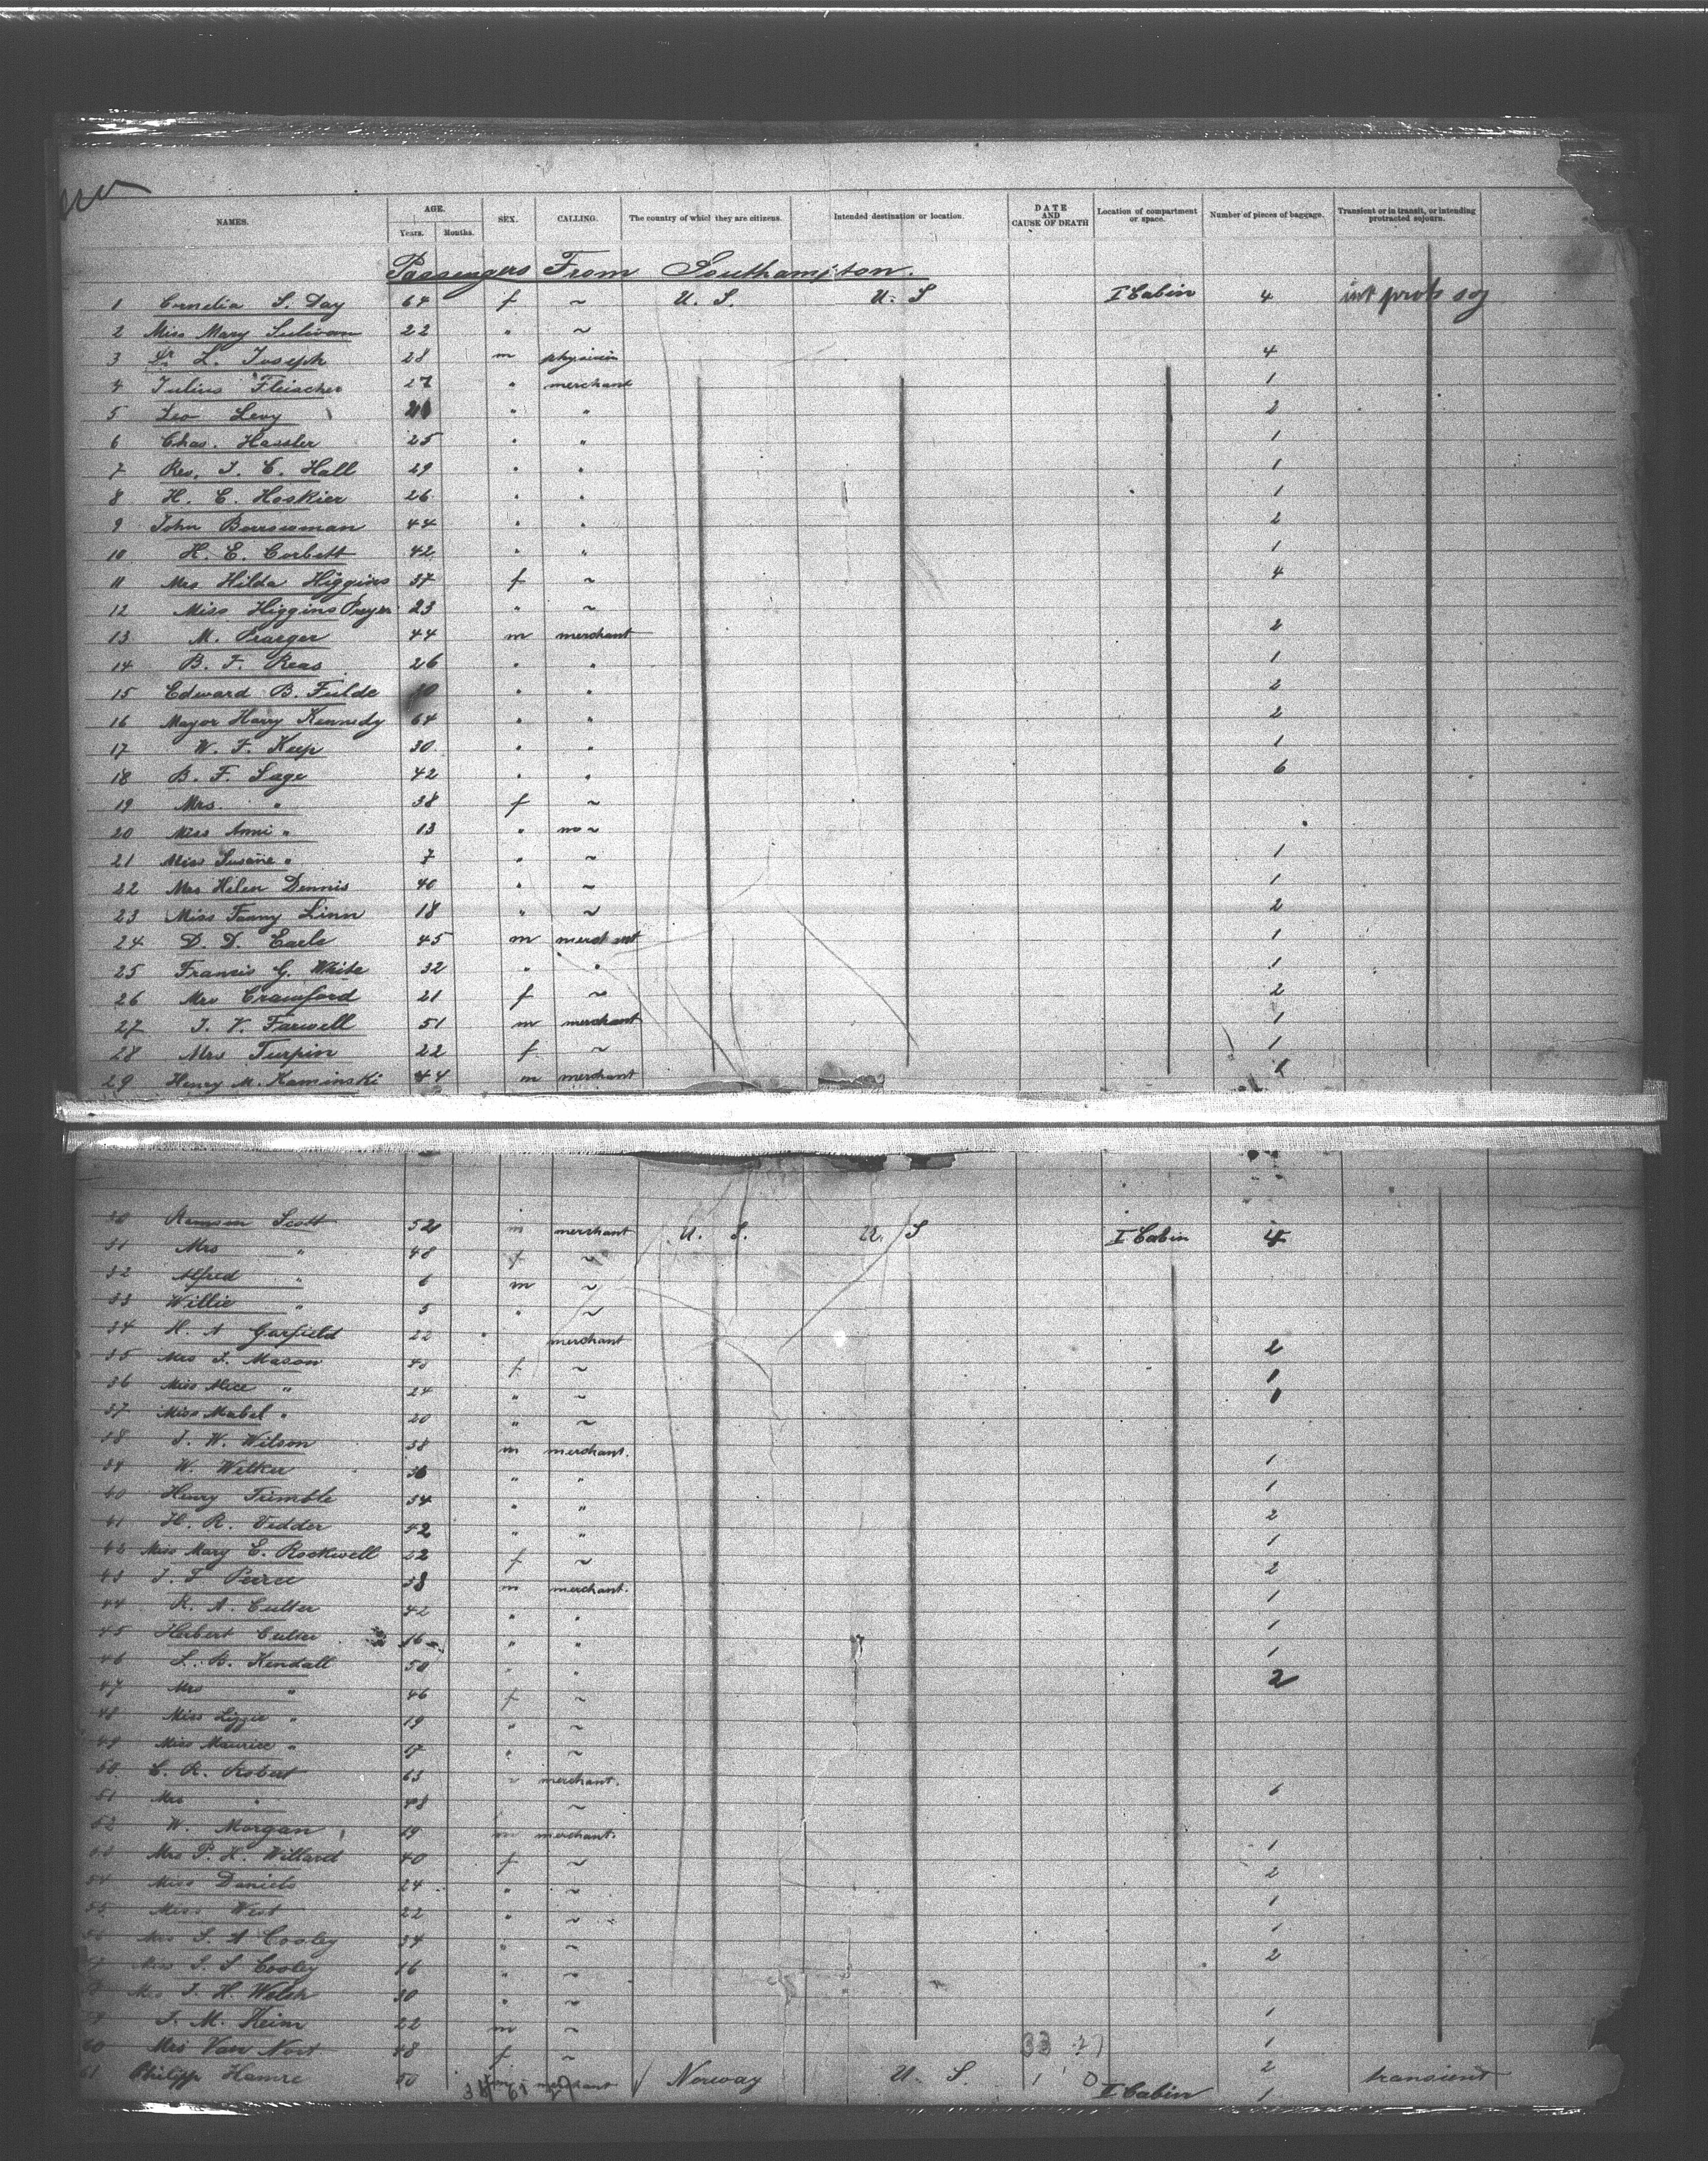 NAMES. AGE. Years. Months. SEX. CALLING. The country of which they are citizens. Intended destination or location. DATE AND CAUSE OF DEATH Location of compartment or space. Number of pieces of baggage. Transient or in transit, or intending protracted sojourn.
Passengers From Southampton.
1 Cornelia S. Day 64 f ~ U. S. U. S I Cabin 4
2 Miss Mary Sulivan 22 " ~
3 Dr L. Joseph 28 m 4
4 Julius Fleischer 27 " merchant 1
5 Leo Levy " " 2
6 Chas. Hassler 25 " " 1
7 Rev. J. C. Hall 29 " " 1
8 H. C. Hoskier 26 " " 1
9 John 44 " " 2
10 H. E. Corbett 42 " " 1
11 Mrs Hilda Higgins 37 f ~ 4
12 Miss Higgins 23 " ~
13 M. Praeger 44 m merchant 2
14 B. F. Reas 26 " " 1
15 Edward B. Fulde " " 2
16 Mayor Harry Kennedy 64 " " 2
17 W. F. Keep 30 " " 1
18 B. F. Sage 42 " " 6
19 Mrs. " 38 f ~
20 Miss Anni " 13 " ~
21 Miss Susane " 7 " ~ 1
22 Mrs Helen Dennis 40 " ~ 1
23 Miss Fanny Linn 18 " ~ 2
24 D. D. Earle 45 m merchant 1
25 Francis G. White 32 " " 1
26 Mrs Crawford 21 f ~ 2
27 J. V. Farwell 51 m merchant 1
28 Mrs Turpin 22 f ~ 1
29 Henry M. Kaminski 44 m merchant
30 Scott 52 m merchant U. S. U. S I Cabin 4
31 Mrs " 48 f ~
32 Alfred " 6 m ~
33 Willie " 5 " ~
34 H. A Garfield 22 merchant 2
35 Mrs J. Mason f ~ 1
36 Miss Alice " 24 " ~ 1
37 Miss Mabel " 20 " ~
38 J. W. Wilson 38 m merchant. 1
39 W. Welker " " 1
40 Henry Trimble 34 " " 2
41 H. R. Vedder 42 " " 1
42 Miss Mary E. Rockwell 22 f ~ 2
43 J. F Peirce 38 m merchant. 1
44 R. A. Cutter 42 " " 1
45 Herbert 16 " " 1
46 L. B. Kendall 50 " " 2
47 Mrs " 46 f ~
48 Miss Lizzie " 19 " ~
49 Miss Maurice " 17 " ~
50 C. R. Robert 63 merchant. 6
51 Mrs " 48 ~
52 W. Morgan m merchant. 1
53 Mrs P. H. Willard 40 f ~ 2
54 Miss Daniels 24 " ~ 1
55 Miss West 22 " ~ 1
56 Mrs S. A Cooley 34 " ~ 2
57 Miss S. S Cooley 16 " ~
58 Mrs J. H. Welch 30 " ~ 1
59 J. M. Heim 22 m ~ 1
60 Mrs Van Nort 48 f ~ 2
61 Philipp Hamre 50 m merchant Norway U. S. I Cabin 1 transient